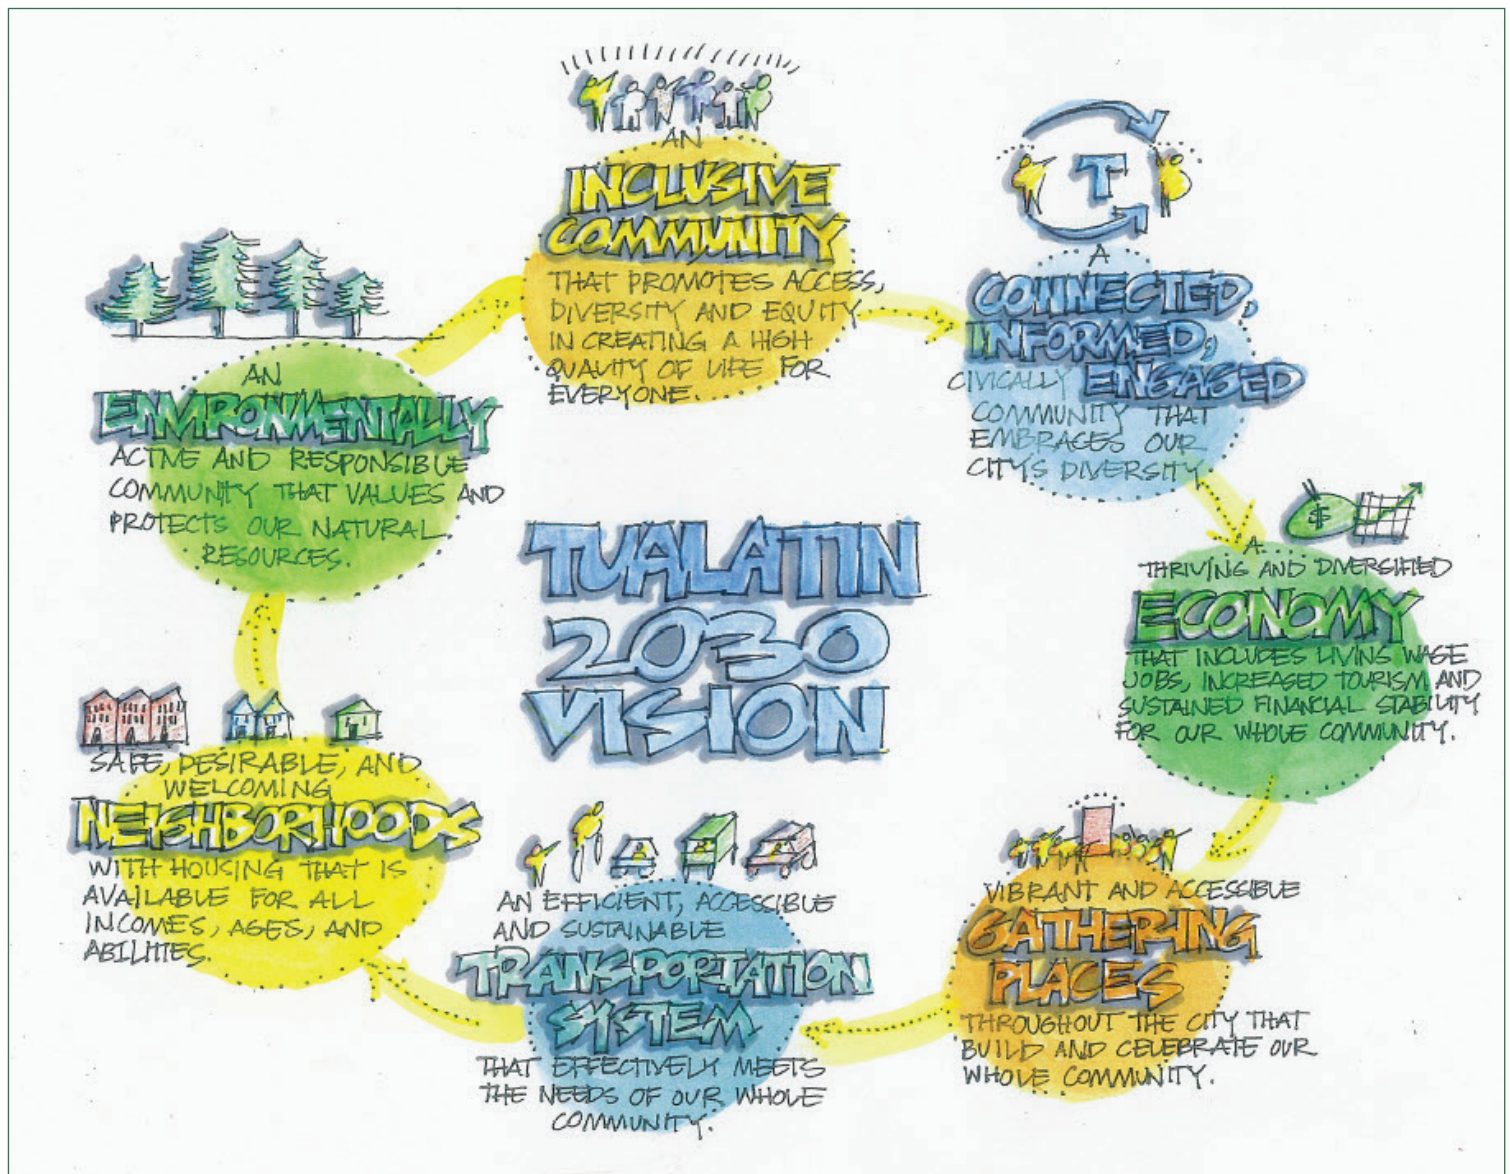 AN
INCLUSIVE
COMMUNITY
THAT PROMOTES ACCESS,
DIVERSITY AND EQUITY
IN CREATING A HIGH
QUALITY OF LIFE FOR
EVERYONE.
T
A
CONNECTED,
INFORMED,
CIVICALLY ENGAGED
COMMUNITY THAT
EMBRACES OUR
CITY'S DIVERSITY
$
A
THRIVING AND DIVERSIFIED
ECONOMY
THAT INCLUDES LIVING WAGE
JOBS, INCREASED TOURISM AND
SUSTAINED FINANCIAL STABILITY
FOR OUR WHOLE COMMUNITY.
VIBRANT AND ACCESSIBLE
GATHERING
PLACES
THROUGHOUT THE CITY THAT
BUILD AND CELEBRATE OUR
WHOLE COMMUNITY.
AN EFFICIENT, ACCESSIBLE
AND SUSTAINABLE
TRANSPORTATION
SYSTEM
THAT EFFECTIVELY MEETS
THE NEEDS OF OUR WHOLE
COMMUNITY.
SAFE, DESIRABLE, AND
WELCOMING
NEIGHBORHOODS
WITH HOUSING THAT IS
AVAILABLE FOR ALL
INCOMES, AGES, AND
ABILITIES.
AN
ENVIRONMENTALLY
ACTIVE AND RESPONSIBLE
COMMUNITY THAT VALUES AND
PROTECTS OUR NATURAL
RESOURCES.
TUALATIN
2030
VISION